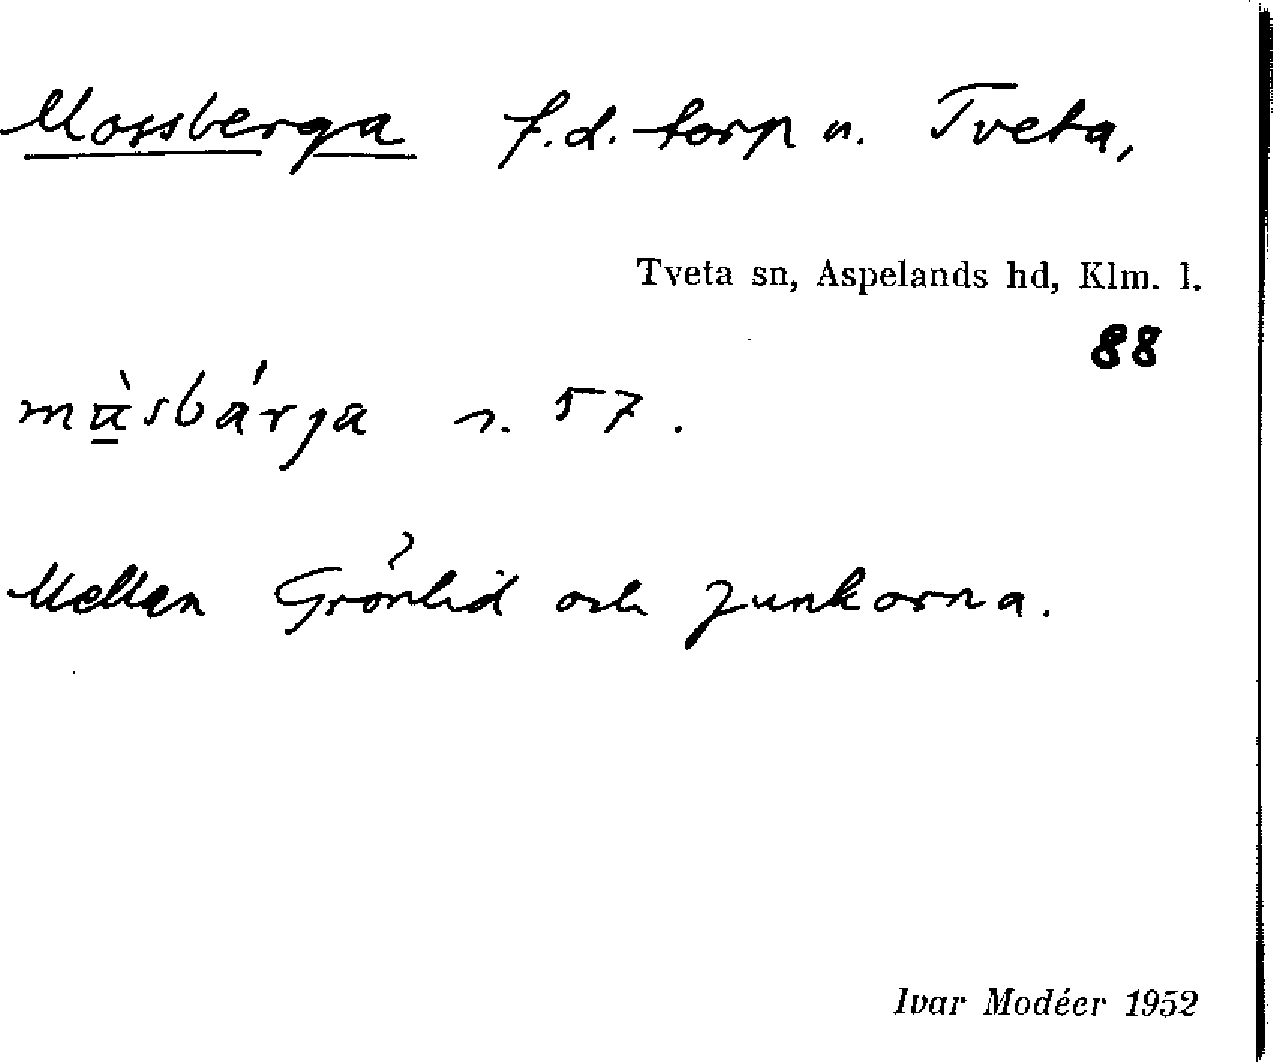 Mossberga f.d. torp u. Tveta,
Tveta sn, Aspelands hd, Klm. l.
88
mùsbárja s. 57.
Mellan Grönlid och Junkorna.
Ivar Modéer 1952